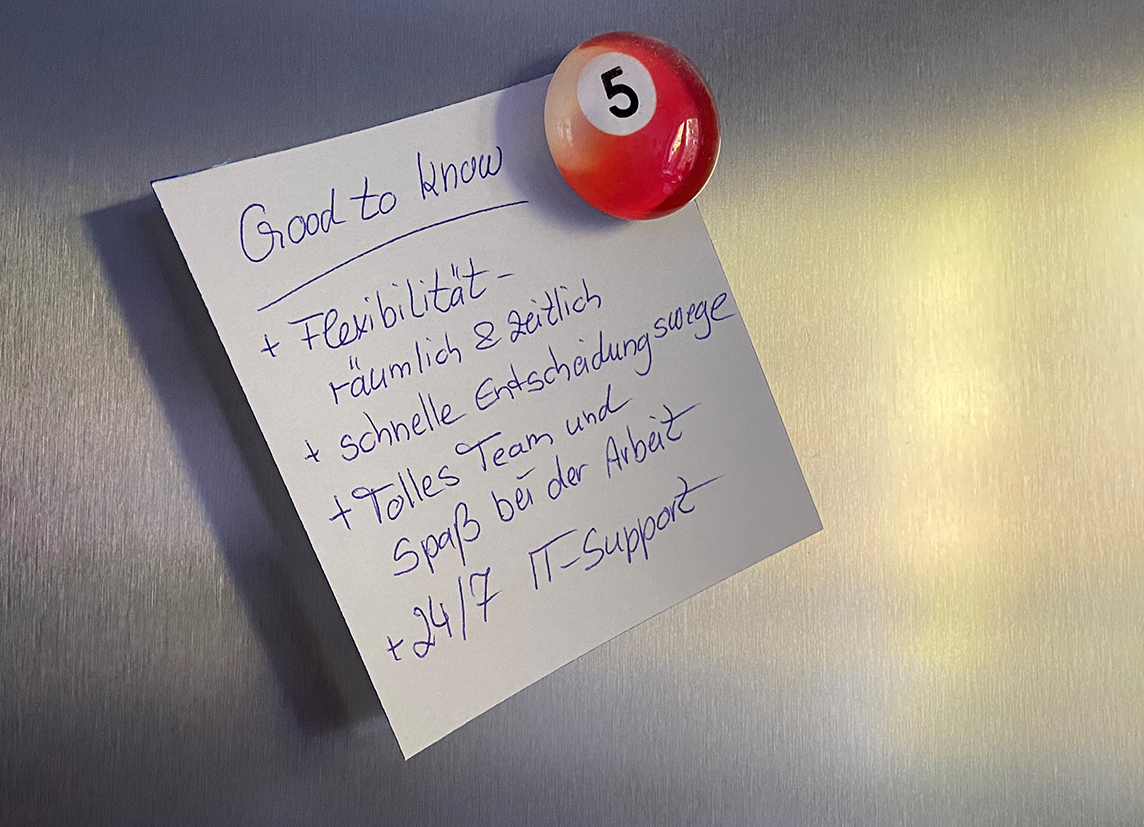 5
Good to know
+ Flexibilität -
räumlich & zeitlich
+ schnelle Entscheidungswege
+ Tolles Team und
Spaß bei der Arbeit
+ 24/7 IT-Support